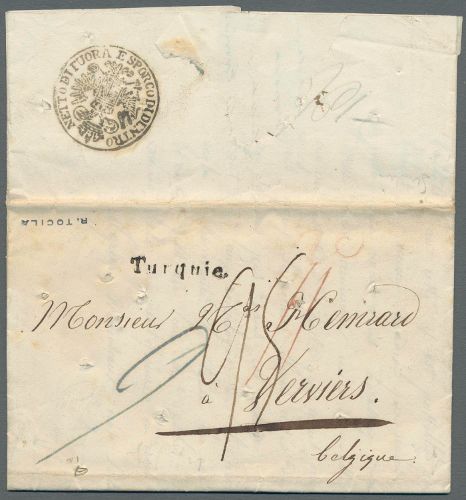 NETTO DI FUORA E SPORCO DI DENTRO
R. TOCILA
Turquie.
Monsieur Hemrard
à Verviérs.
belgique.